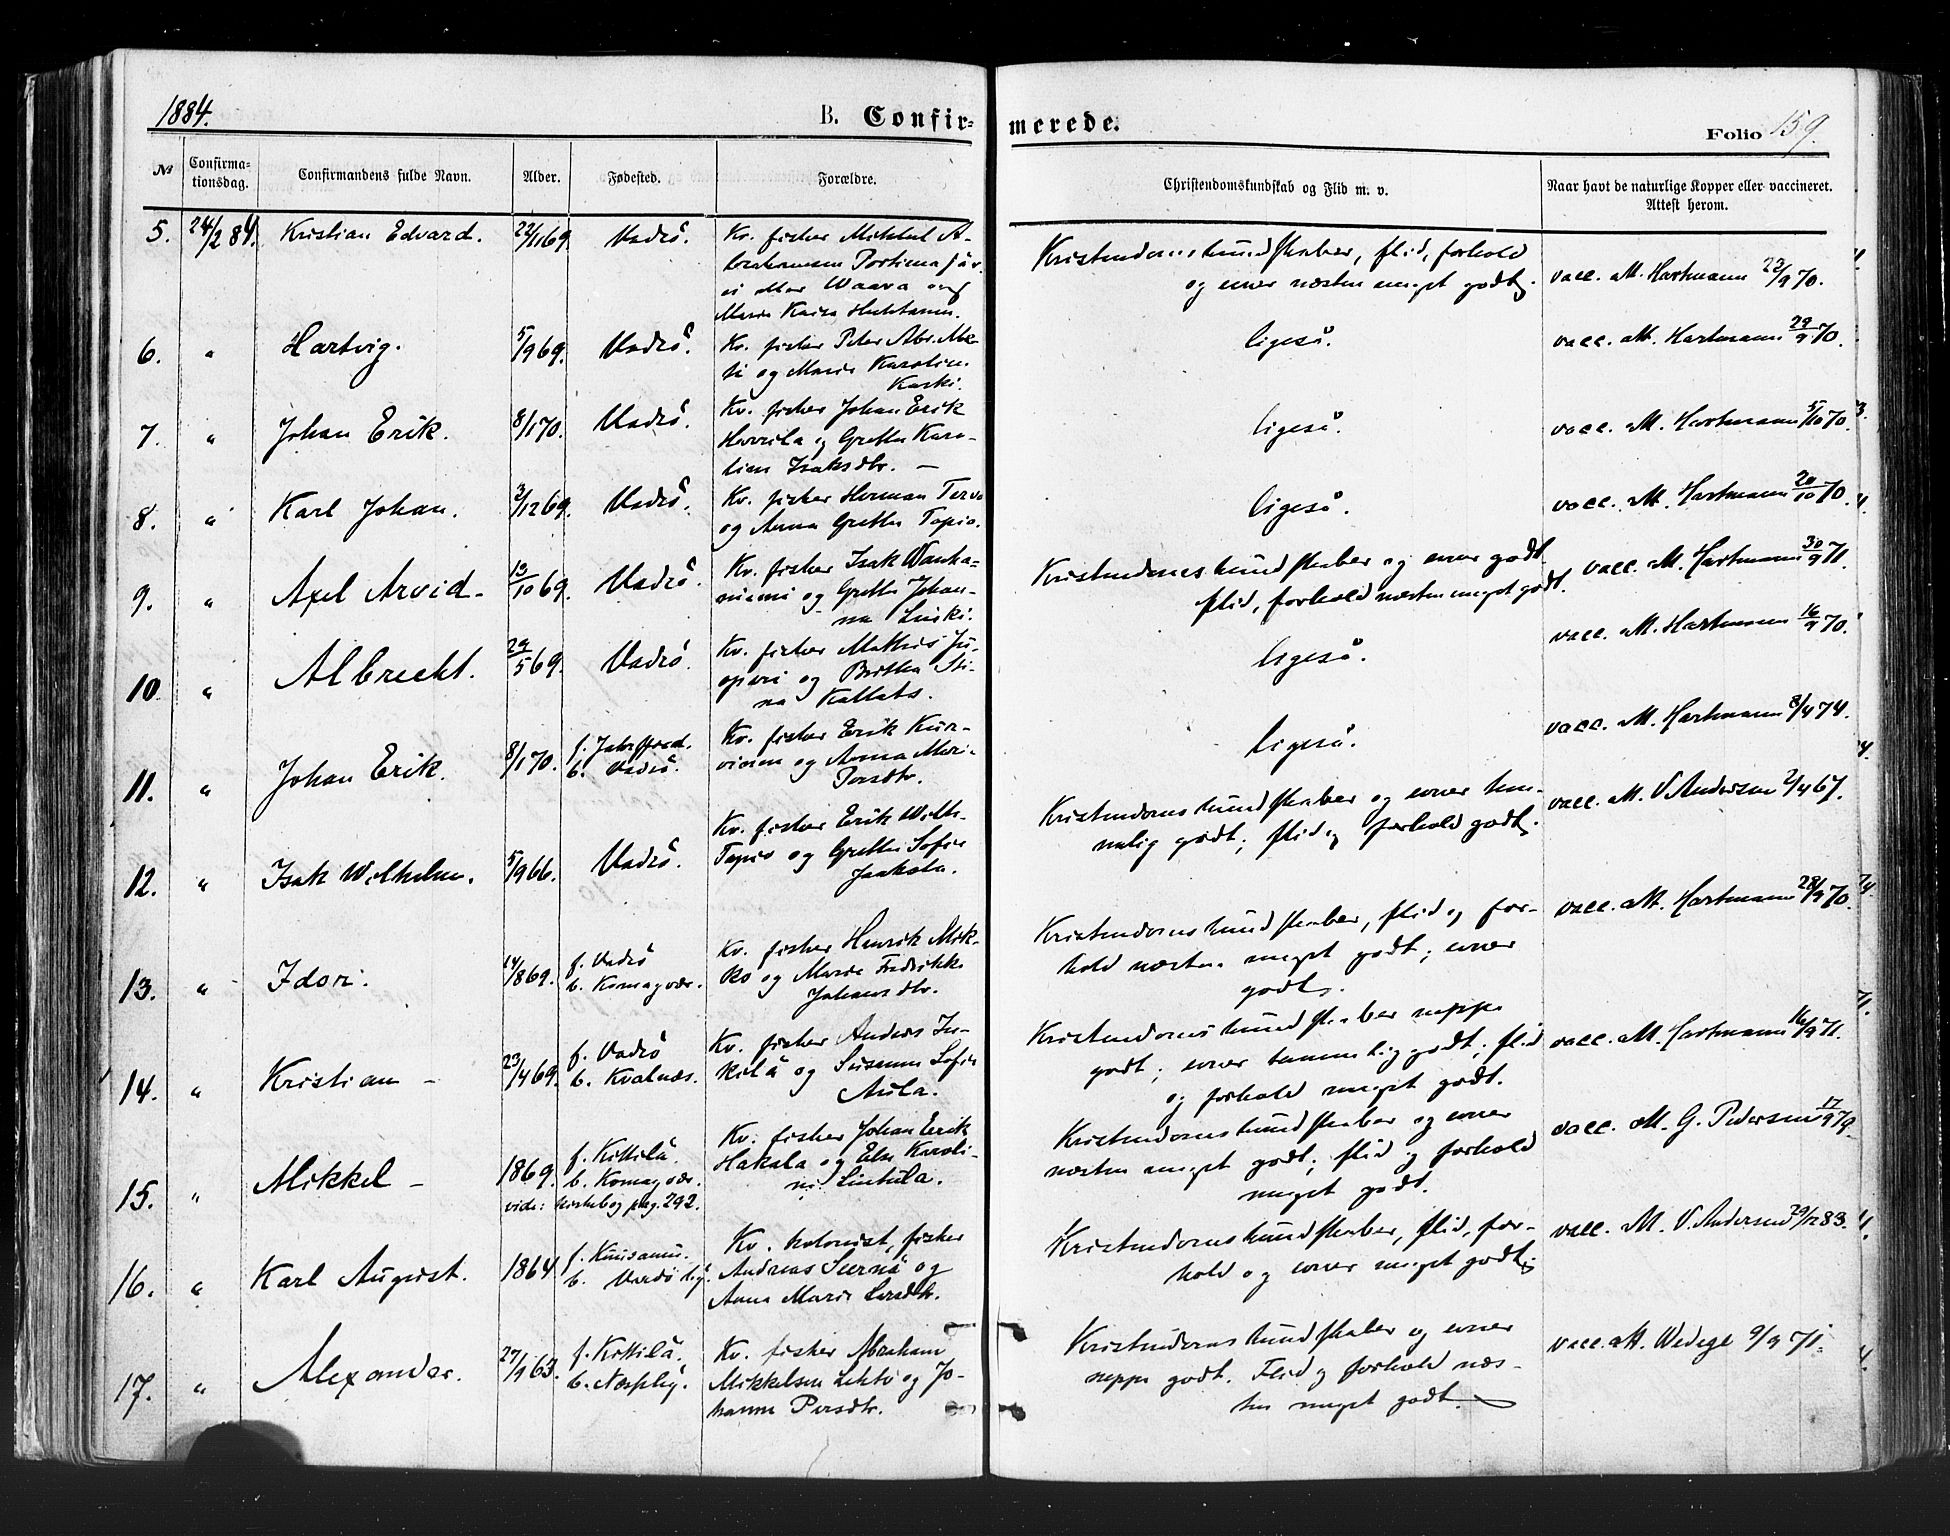 1884.
B. Confir-
merede.
Folio 159.
No
Confirma-
tionsdag.
Confirmandens fulde Navn.
Alder.
Fødested.
Forældre.
Christendomskundskab og Flid m. v.
Naar havt de naturlige Kopper eller vaccineret.
Attest herom.
5. 24/2 84. Kristian Edvard. 22/1 69. Vadsö. Kv. fisker Mikkel A-
brahamsen Portimojär-
vi eller Waara og
Maria Kaisa
Kristendomskundskaber, flid, forhold
og evner næsten meget godt.
vacc. M. Hartmann 23/9 70.
6. " Hartvig. 5/9 69. Vadsö. Kv. fisker Peter Abr.
og Maria Karolina
Karki.
ligeså.
vacc. M. Hartmann 29/9 70.
7. " Johan Erik. 8/1 70. Vadsö. Kv. fisker Johan Erik
og Gretha Karo-
lina Isaksdtr. —
ligeså.
vacc. M. Hartmann 5/10 70.
8. " Karl Johan. 3/12 69. Vadsö. Kv. fisker Herman Tervo
og Anna Gretha Tapio.
ligeså.
vacc. M. Hartmann 20/10 70.
9. " Axel Arvid - 13/10 69. Vadsö. Kv. fisker Isak Wanha-
niemi og Gretha Johan-
na
Kristendomskundskaber og evner godt.
flid, forhold næsten meget godt.
vacc. M. Hartmann 30/9 71.
10 " Albrecht. 29/5 69. Vadsö. Kv. fisker Mathis Ju-
opperi og Britha Sti-
na
ligeså.
vacc. M. Hartmann 16/9 70.
11. " Johan Erik. 8/1 70. f. Jakobsfjord.
b. Vadsö.
Kv. fisker Erik Kur-
vinen og Anna Mari-
Persdtr.
ligeså.
vacc. M. Hartmann 8/4 74.
12. " Isak Wilhelm. 5/9 66. Vadsö. Kv. fisker Erik Wilh.
Tapio og Gretha Sofia
Jaakola.
Kristendomskundskaber og evner tem-
melig godt; flid og forhold godt.
vacc. M. V. Andersen 2/4 67.
13. " Idor. 14/8 69. f. Vadsö
b. Komagvær.
Kv. fisker Henrik Mik-
ko og Maria Fredrikke
Johansdtr.
Kristendomskundskaber, flid og for-
hold næsten meget godt; evner
godt.
vacc. M. Hartmann 28/9 70.
14. " Kristian - 23/4 69. f. Vadsö
b. Kvalnæs.
Kv. fisker Anders In-
kilä og Susanna Sofia
Aula.
Kristendomskundskaber neppe
godt; evner temmelig godt; flid
og forhold meget godt.
vacc. M. Hartmann 16/9 71.
15. " Mikkel - 1869. f. Kittilä.
b. Komagvær.
vide: kirkebog pag. 292.
Kv. fisker Johan Erik
Hakala og Elsa Karoli-
na Lintula.
Kristendomskundskaber og evner
næsten meget godt; flid og forhold
meget godt.
vacc. M. G. Pedersen 17/9 79.
16. " Karl August. 1864 f. Kuusamo.
b. Vardö
Kv. kolonist, fisker
Andreas Siernä og
Anna Maria Larsdtr.
Kristendomskundskaber, flid, for-
hold og evner meget godt.
vacc. M. V. Andersen 29/12 83.
17. " Alexander. 27/9 63. f. Kittilä.
b. Næsseby.
Kv. fisker Abraham
Mikkelsen Lehto og Jo-
hanna Persdtr.
Kristendomskundskaber og evner
neppe godt. Flid og forhold næs-
ten meget godt.
vacc. M. Wedege 9/9 71.